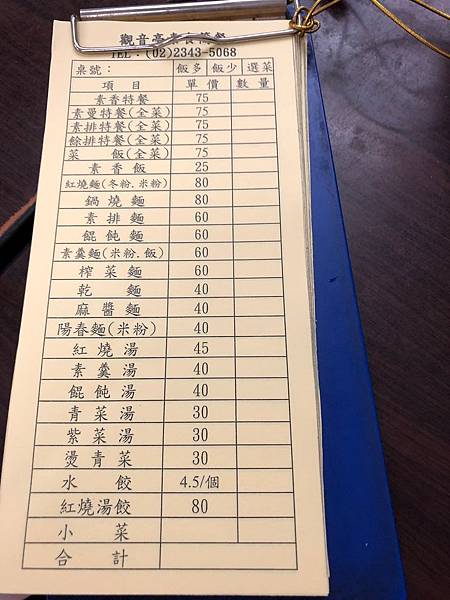 觀音亭素食簡餐
TEL：(02)2343-5068
桌號： 飯多 飯少 選菜
項 目 單 價 數 量
素香特餐 75
素曼特餐(全菜) 75
素排特餐(全菜) 75
餘排特餐(全菜) 75
菜 飯(全菜) 75
素 香 飯 25
紅燒麵(冬粉.米粉) 80
鍋 燒 麵 80
素 排 麵 60
餛 飩 麵 60
素羹麵(米粉.飯) 60
榨 菜 麵 60
乾 麵 40
麻 醬 麵 40
陽春麵(米粉) 40
紅 燒 湯 45
素 羹 湯 40
餛 飩 湯 40
青 菜 湯 30
紫 菜 湯 30
燙 青 菜 30
水 餃 4.5/個
紅燒湯餃 80
小 菜
合 計